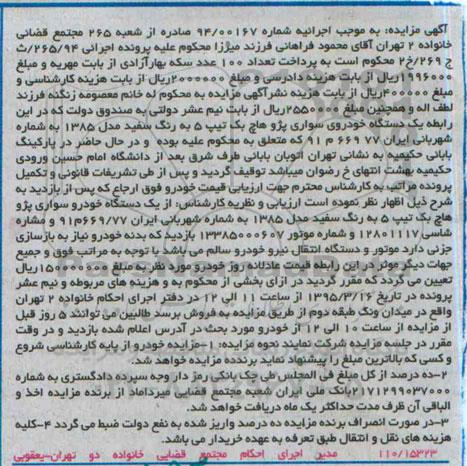 آگهی مزایده: به موجب اجرائیه شماره ۹۴/۰۰۱۶۷ صادره از شعبه ۲۶۵ مجتمع قضائی
خانواده ۲ تهران آقای محمود فراهانی فرزند میرزا محکوم علیه پرونده اجرائی ۲۶۵/۹۴/ث
ج ۲۶۹/خ۲ محکوم است به پرداخت تعداد ۱۰۰ عدد سکه بهارآزادی از بابت مهریه و مبلغ
۱۹۹۶۰۰۰ریال از بابت هزینه دادرسی و مبلغ ۲۰۰۰۰۰۰ریال از بابت هزینه کارشناسی و
مبلغ ۴۰۰۰۰۰ریال از بابت هزینه نشرآگهی مزایده به محکوم له خانم معصومه زنگنه فرزند
لطف اله و همچنین مبلغ ۲۵۵۰۰۰۰ریال از بابت نیم عشر دولتی به صندوق دولت که در این
رابطه یک دستگاه خودروی سواری پژو هاچ بک تیپ ۵ به رنگ سفید مدل ۱۳۸۵ به شماره
شهربانی ایران ۷۷ ۶۶۹ م ۹۱ که متعلق به محکوم علیه بوده و در حال حاضر در پارکینگ
بابائی حکیمیه به نشانی تهران اتوبان بابائی طرف شرق بعد از دانشگاه امام حسین ورودی
حکیمیه بهشت انتهای خ رضوان میباشد توقیف گردید و پس از طی تشریفات قانونی و تکمیل
پرونده مراتب به کارشناس محترم جهت ارزیابی قیمت خودرو فوق ارجاع که پس از بازدید به
شرح ذیل اظهار نظر نموده است ارزیابی و نظریه کارشناس: از یک دستگاه خودرو سواری پژو
هاچ بک تیپ ۵ به رنگ سفید مدل ۱۳۸۵ به شماره شهربانی ایران ۶۶۹/۷۷م۹۱ و مشاره
شاسی۱۲۸۰۱۱۱۷ و شماره موتور ۱۳۳۸۵۰۰۰۶۰۷ بازدید که بدنه خودرو نیاز به بازسازی
جزئی دارد موتور و دستگاه انتقال نیرو خودرو سالم می باشد با توجه به مراتب فوق و جمیع
جهات دیگر موثر در این رابطه قیمت عادلانه روز خودرو مورد نظر به مبلغ ۱۵۰۰۰۰۰۰۰ریال
تعیین می گردد که مقرر گردید در ازای بخشی از محکوم به و هزینه های مربوطه و نیم عشر
پرونده در تاریخ ۱۳۹۵/۳/۱۶ از ساعت ۱۱ الی ۱۲ در دفتر اجرای احکام خانواده ۲ تهران
واقع در میدان ونک طبقه دوم از طریق مزایده به فروش برسد طالبین می توانند ۵ روز قبل
از مزایده از ساعت ۱۰ الی ۱۲ از خودرو مورد بحث در آدرس اعلام شده بازدید و در وقت
مقرر در جلسه مزایده شرکت نمایند نحوه مزایده: ۱-مزایده خودرو از پایه کارشناسی شروع
و کسی که بالاترین مبلغ را پیشنهاد نماید برنده مزایده خواهد شد.
۲-ده درصد از کل مبلغ فی المجلس طی چک بانکی رمز دار وجه سپرده دادگستری به شماره
۲۱۷۱۲۹۹۰۳۷۰۰۰بانک ملی ایران شعبه مجتمع قضایی میرداماد از برنده مزایده اخذ و
الباقی آن ظرف مدت حداکثر یک ماه دریافت خواهد شد.
۳-در صورت انصراف برنده مزایده ده درصد واریز شده به نفع دولت ضبط می گردد ۴-کلیه
هزینه های نقل و انتقال طبق تعرفه به عهده خریدار می باشد.
۱۱۰/۱۵۳۲۳ مدیر اجرای احکام مجتمع قضایی خانواده دو تهران-یعقوبی